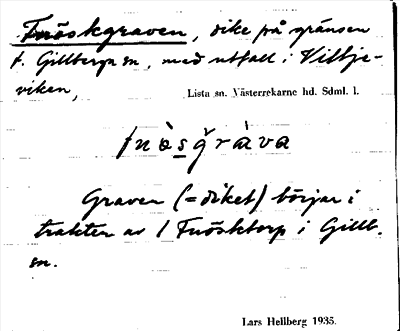 Fnöskgraven, dike på gränsen
t. Gillberga sn, med utfall i Vilbje-
viken,
Lista sn. Västerrekarne hd. Sdml. l.
fnö̀sgràva
Graven (= diket) börjar i
trakten av / Fnösktorp i Gillb.
sn.
Lars Hellberg 1935.